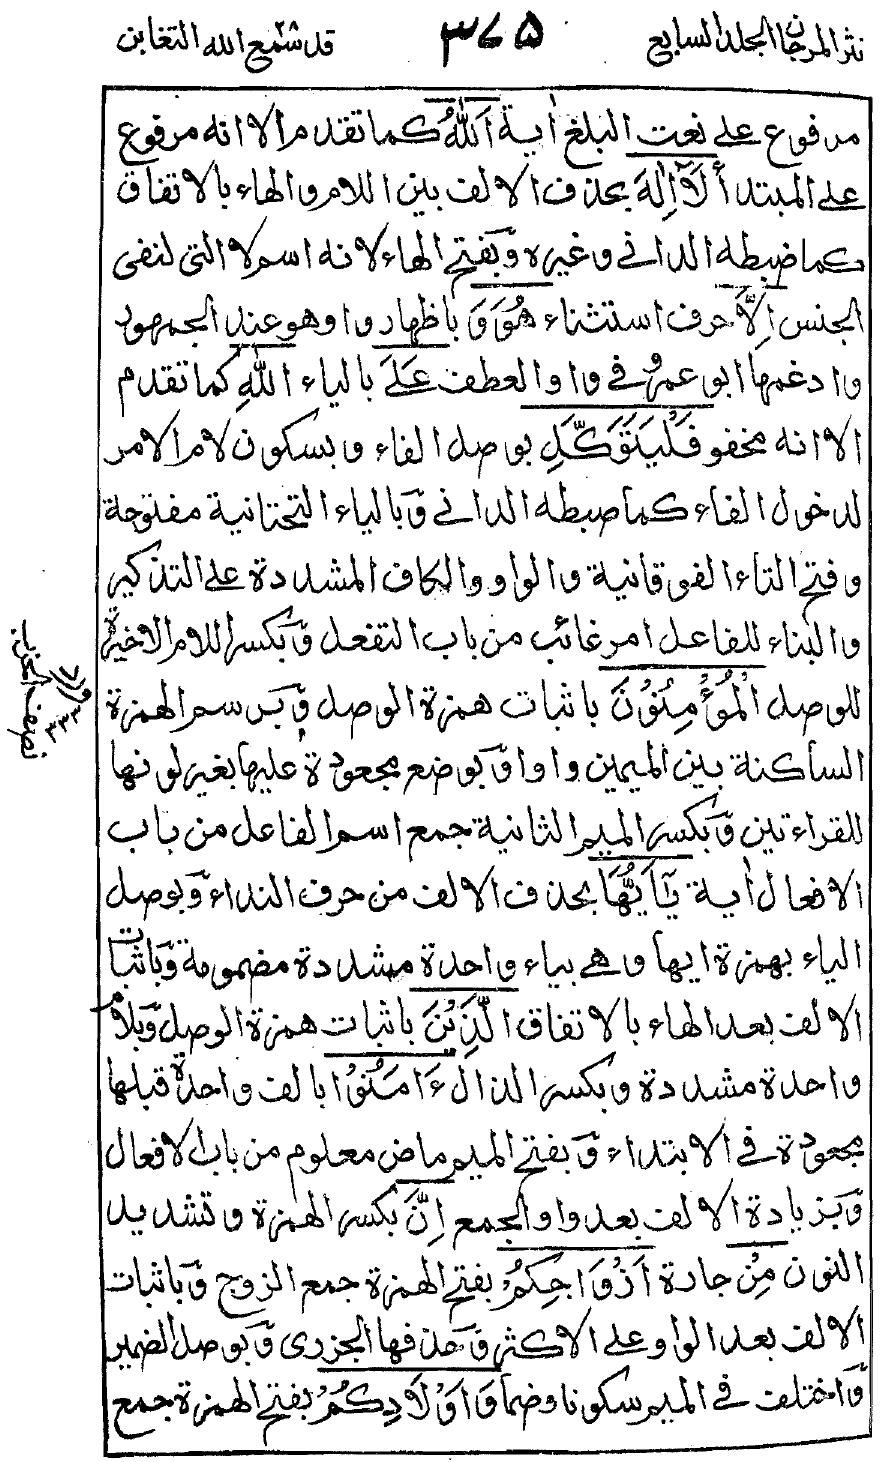 نثر المرجان الجلد السابع
٣٧٥
قد سمع الله ٢٨ التغابن
مرفوع على نعت البلغ اٰية اَللهُ كما تقدم الا انه مرفوع
على المبتدأ لَآ اِلٰهَ بحذف الالف بين اللام والهاء بالاتفاق
كما ضبطه الدانى وغيره وَبفتح الهاء لانه اسم لا التى لنفى
الجنس اِلَّا حرف استثناء هُوَ وَ باظهار واو هو عند الجمهور
وادغمها ابو عمرو فى واو العطف عَلَى بالياء اللهِ كما تقدم
الا انه مخفو فَلْيَتَوَكَّلِ بوصل الفاء وبسكون لام الامر
لدخول الفاء كما ضبطه الدانى وَبالياء التحتانية مفتوحة
وفتح التاء الفوقانية والواو والكاف المشددة على التذكير
والبناء للفاعل امر غائب من باب التفعل وَبكسر اللام الاخيرة
للوصل الْمُؤْمِنُوْنَ باثبات همزة الوصل وَبرسم الهمزة
الساكنة بين الميمين واوا وَبوضع مجعودة عليها بغير لونها
للقراءتين وَبكسر الميم الثانية جمع اسم الفاعل من باب
الافعال اٰية يٰٓاَيُّهَا بحذف الالف من حرف النداء وَبوصل
الياء بهمزة ايها وهى بياء واحدة مشددة مضمومة وَباثبات
الالف بعد الهاء بالاتفاق الَّذِيْنَ باثبات همزة الوصل وَبلام
واحدة مشددة وبكسر الذال ءَامَنُوْا بالف واحدة قبلها
مجعودة فى الابتداء وَبفتح الميم ماض معلوم من باب الافعال
وَبزيادة الالف بعد واو الجمع اِنَّ بكسر الهمزة وتشديد
النون مِنْ جارة اَزْوَاجِكُمْ بفتح الهمزة جمع الزوج وَباثبات
الالف بعد الواو على الاكثر وَحذفها الجزرى وَبوصل الضمير
وَاختلف فى الميم سكونا وضما وَاَوْلَادِكُمْ بفتح الهمزة جمع
نصف الحزب